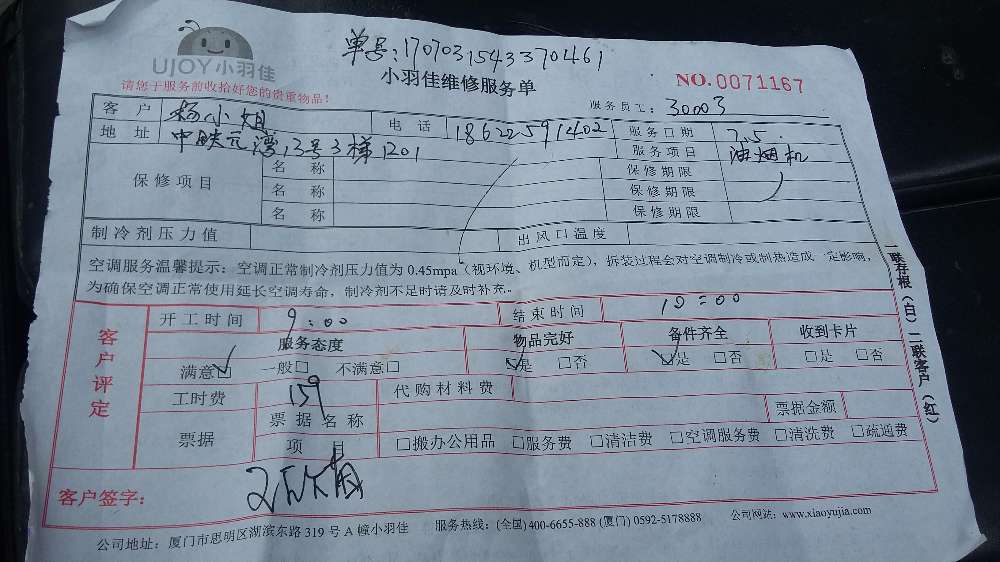 UJOY小羽佳
单号:170703154337​0461
小羽佳维修服务单
NO.0071167
请您于服务前收拾好您的贵重物品!
服务员工: 30003
客户 杨小姐 电话 18622591402 服务日期 7.5.
地址 中铁元湾13号3梯1201 服务项目 油烟机
保修项目 名称 保修期限
名称 保修期限
名称 保修期限
制冷剂压力值 出风口温度
空调服务温馨提示:空调正常制冷剂压力值为0.45mpa(视环境、机型而定),拆装过程会对空调制冷或制热造成一定影响,
为确保空调正常使用延长空调寿命,制冷剂不足时请及时补充。
客户评定
开工时间 9:00 结束时间 10:00
服务态度 物品完好 备件齐全 收到卡片
满意☑ 一般□ 不满意□ ☑是 □否 ☑是 □否 □是 □否
工时费 159 代购材料费
票据 票据名称 票据金额
项目 □搬办公用品 □服务费 □清洁费 □空调服务费 □清洗费 □疏通费
客户签字:
公司地址:厦门市思明区湖滨东路319号A幢小羽佳 服务热线:(全国)400-6655-888 (厦门) 0592-5178888 公司网站:www.xiaoyujia.com
一联存根(白)二联客户(红)